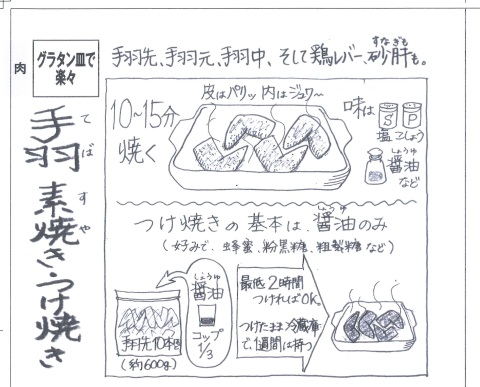 肉
グラタン皿で
楽々
手羽 素焼き・つけ焼き
てば すや
手羽先、手羽元、手羽中、そして鶏レバー、砂肝も。
すなぎも
皮はパリッ 内はジュワ〜
10〜15分
焼く
味は
S P
塩 こしょう
しょうゆ
醤油
など
つけ焼きの基本は、醤油のみ
しょうゆ
(好みで、蜂蜜、粉黒糖、粗製糖など)
手羽先10本
(約600g)
しょうゆ
醤油
コップ
1/3
最低2時間
つければOK。
つけたまま冷蔵庫
で、1週間は持つ